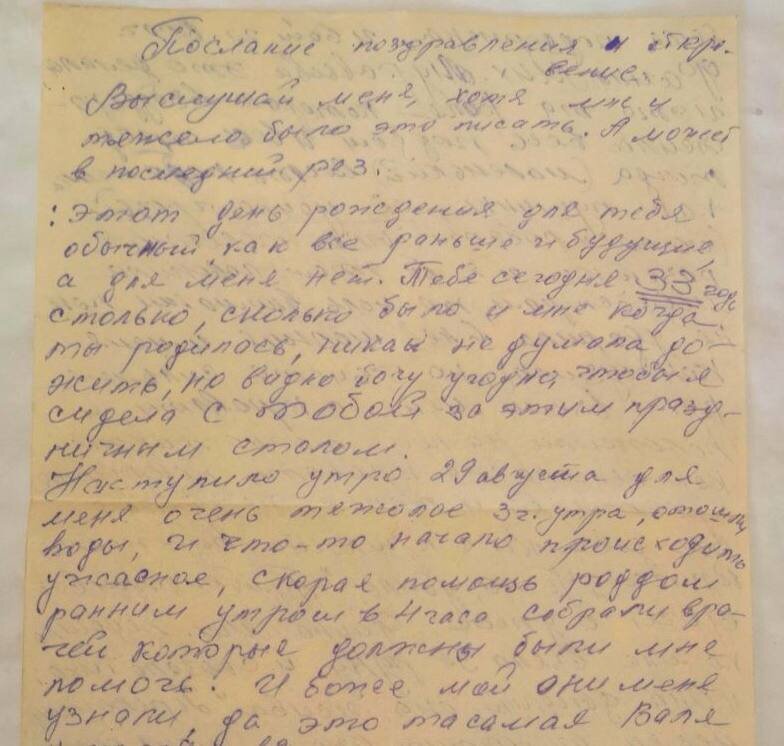 Послание поздравления и откро-
вение.
Выслушай меня, хотя мне и
тяжело было это писать. А может
в последний рез.
: Этот день рождения для тебя
обычный как все раньше и будущие,
а для меня нет. Тебе сегодня 33 года
столько, сколько было и мне когда
ты родилась, никак не думала до-
жить, но видно богу угодно, чтобы я
сидела с тобой за этим празд-
ничным столом.
Наступило утро 29 августа для
меня очень тяжолое 3 ч. утра, отошли
воды, и что-то начало происходить
ужасное, скорая помощь роддом
ранним утром в 4 часа собрали вра-
чей которые должны были мне
помочь. И боже мой они меня
узнали да это та самая Валя